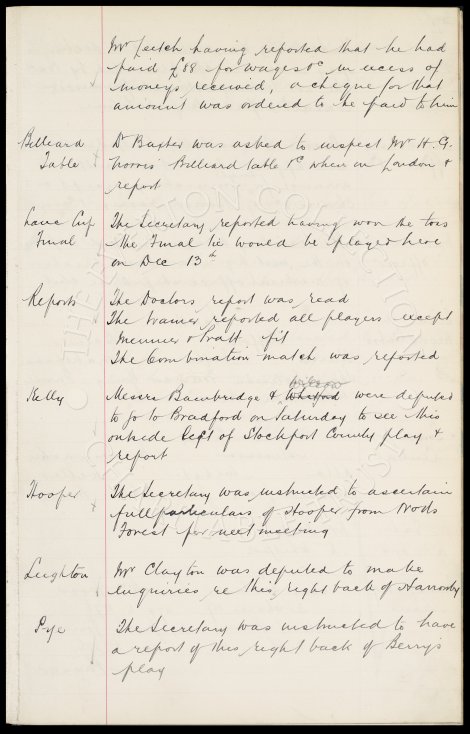 Mr Leitch having reported that he had
paid £88 for wages &c in excess of
moneys received, a cheque for that
amount was ordered to be paid to him
Billiard Table
Dr Baxter was asked to inspect Mr H. G.
Norris' Billiard table &c when in London &
report
Lanc Cup Final
The Secretary reported having won the toss
the Final tie would be played here
on Dec 13th
Reports
The Doctors report was read
The trainer reported all players except
& Pratt fit
The Combination match was reported
Kelly
Messrs Bainbridge & Whitford Wilson were deputed
to go to Bradford on Saturday to see this
outside left of Stockport County play &
report
Hooper
The Secretary was instructed to ascertain
full particulars of Hooper from Notts
Forest for next meeting
Leighton
Mr Clayton was deputed to make
enquiries re this right back of
Pye
The Secretary was instructed to have
a report of this right back of Berry's
play
THE EVERTON COLLECTION